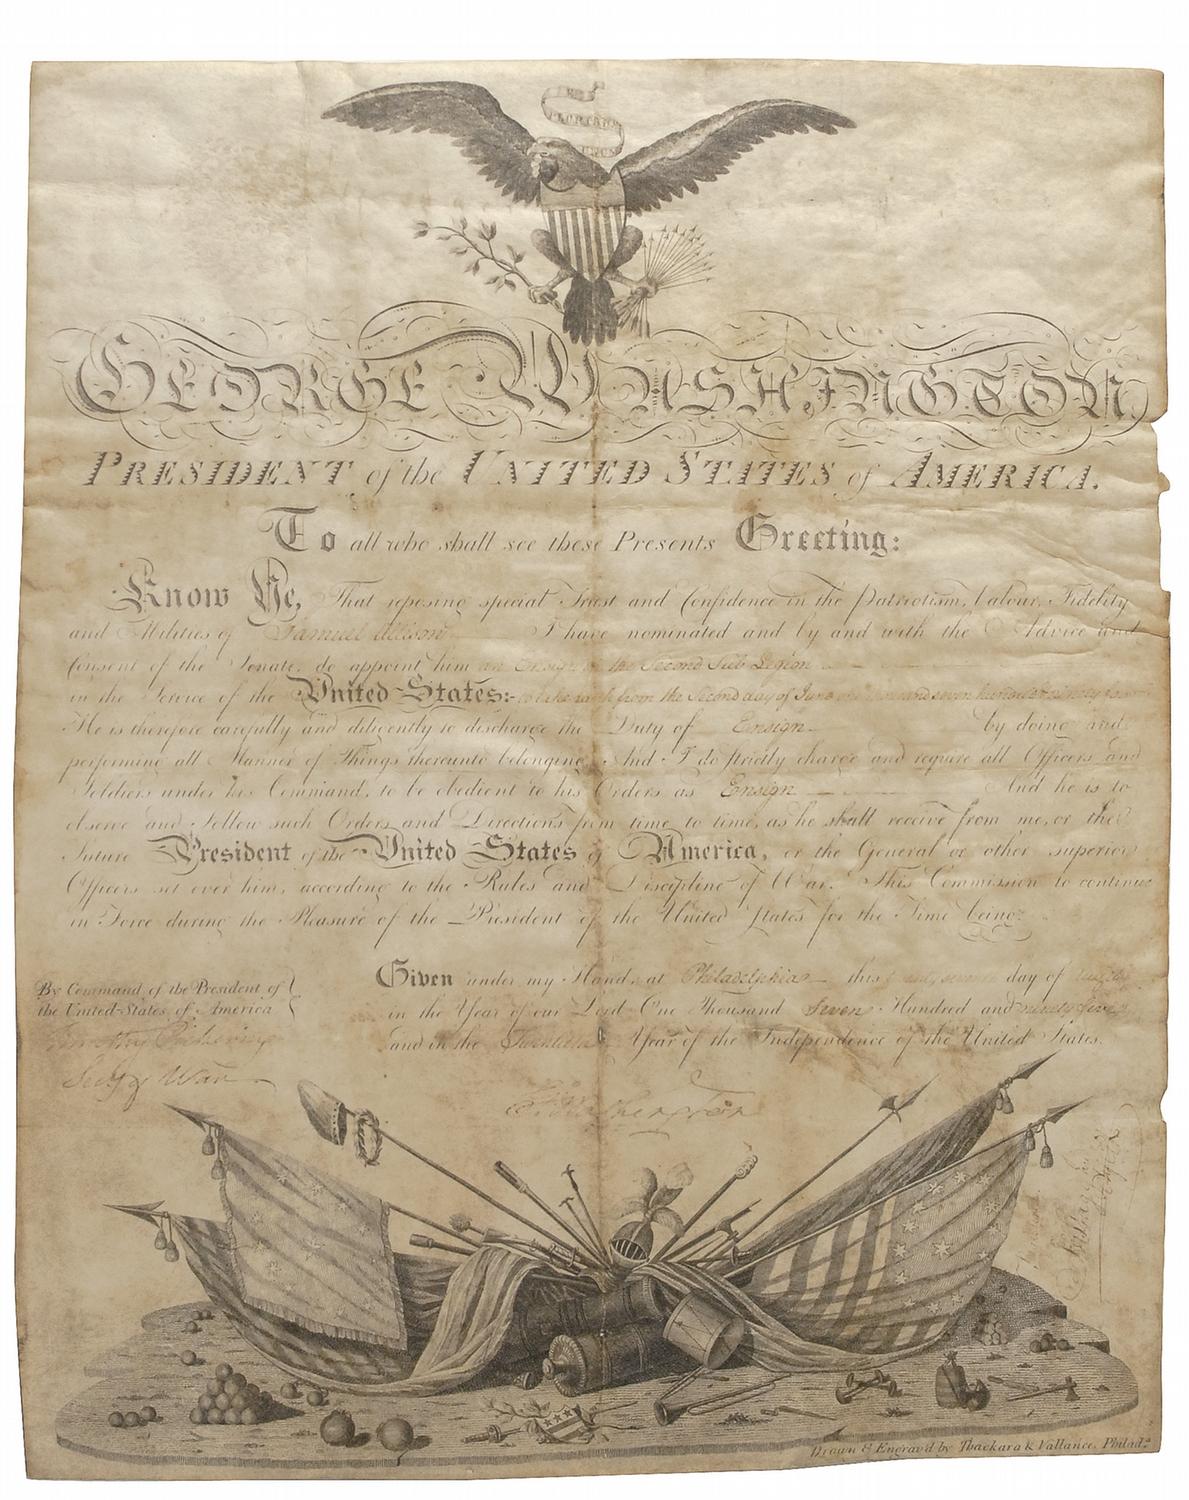 E PLURIBUS UNUM
GEORGE WASHINGTON,
PRESIDENT of the UNITED STATES of AMERICA.
To all who shall see these Presents Greeting:
Know Ye, That reposing special Trust and Confidence in the Patriotism, Valour, Fidelity
and Abilities of Samuel Allison I have nominated and by and with the Advice and
Consent of the Senate, do appoint him an Ensign in the Second Sub Legion
in the Service of the United States:- to take rank from the Second day of June one thousand seven hundred & ninety
He is therefore carefully and diligently to discharge the Duty of Ensign by doing and
performing all Manner of Things thereunto belonging. And I do strictly charge and require all Officers and
Soldiers under his Command, to be obedient to his Orders as Ensign And he is to
observe and follow such Orders and Directions from time to time, as he shall receive from me, or the
future President of the United States of America, or the General or other superior
Officers set over him, according to the Rules and Discipline of War. This Commission to continue
in Force during the Pleasure of the President of the United States for the Time being.
Given under my Hand, at Philadelphia this day of
in the Year of our Lord One Thousand Seven Hundred and ninety five
and in the Twentieth Year of the Independence of the United States.
By Command of the President of
the United States of America
Timothy Pickering
Secy of War
G. Washington
Drawn & Engrav'd by Thackara & Vallance. Philad.ᵃ